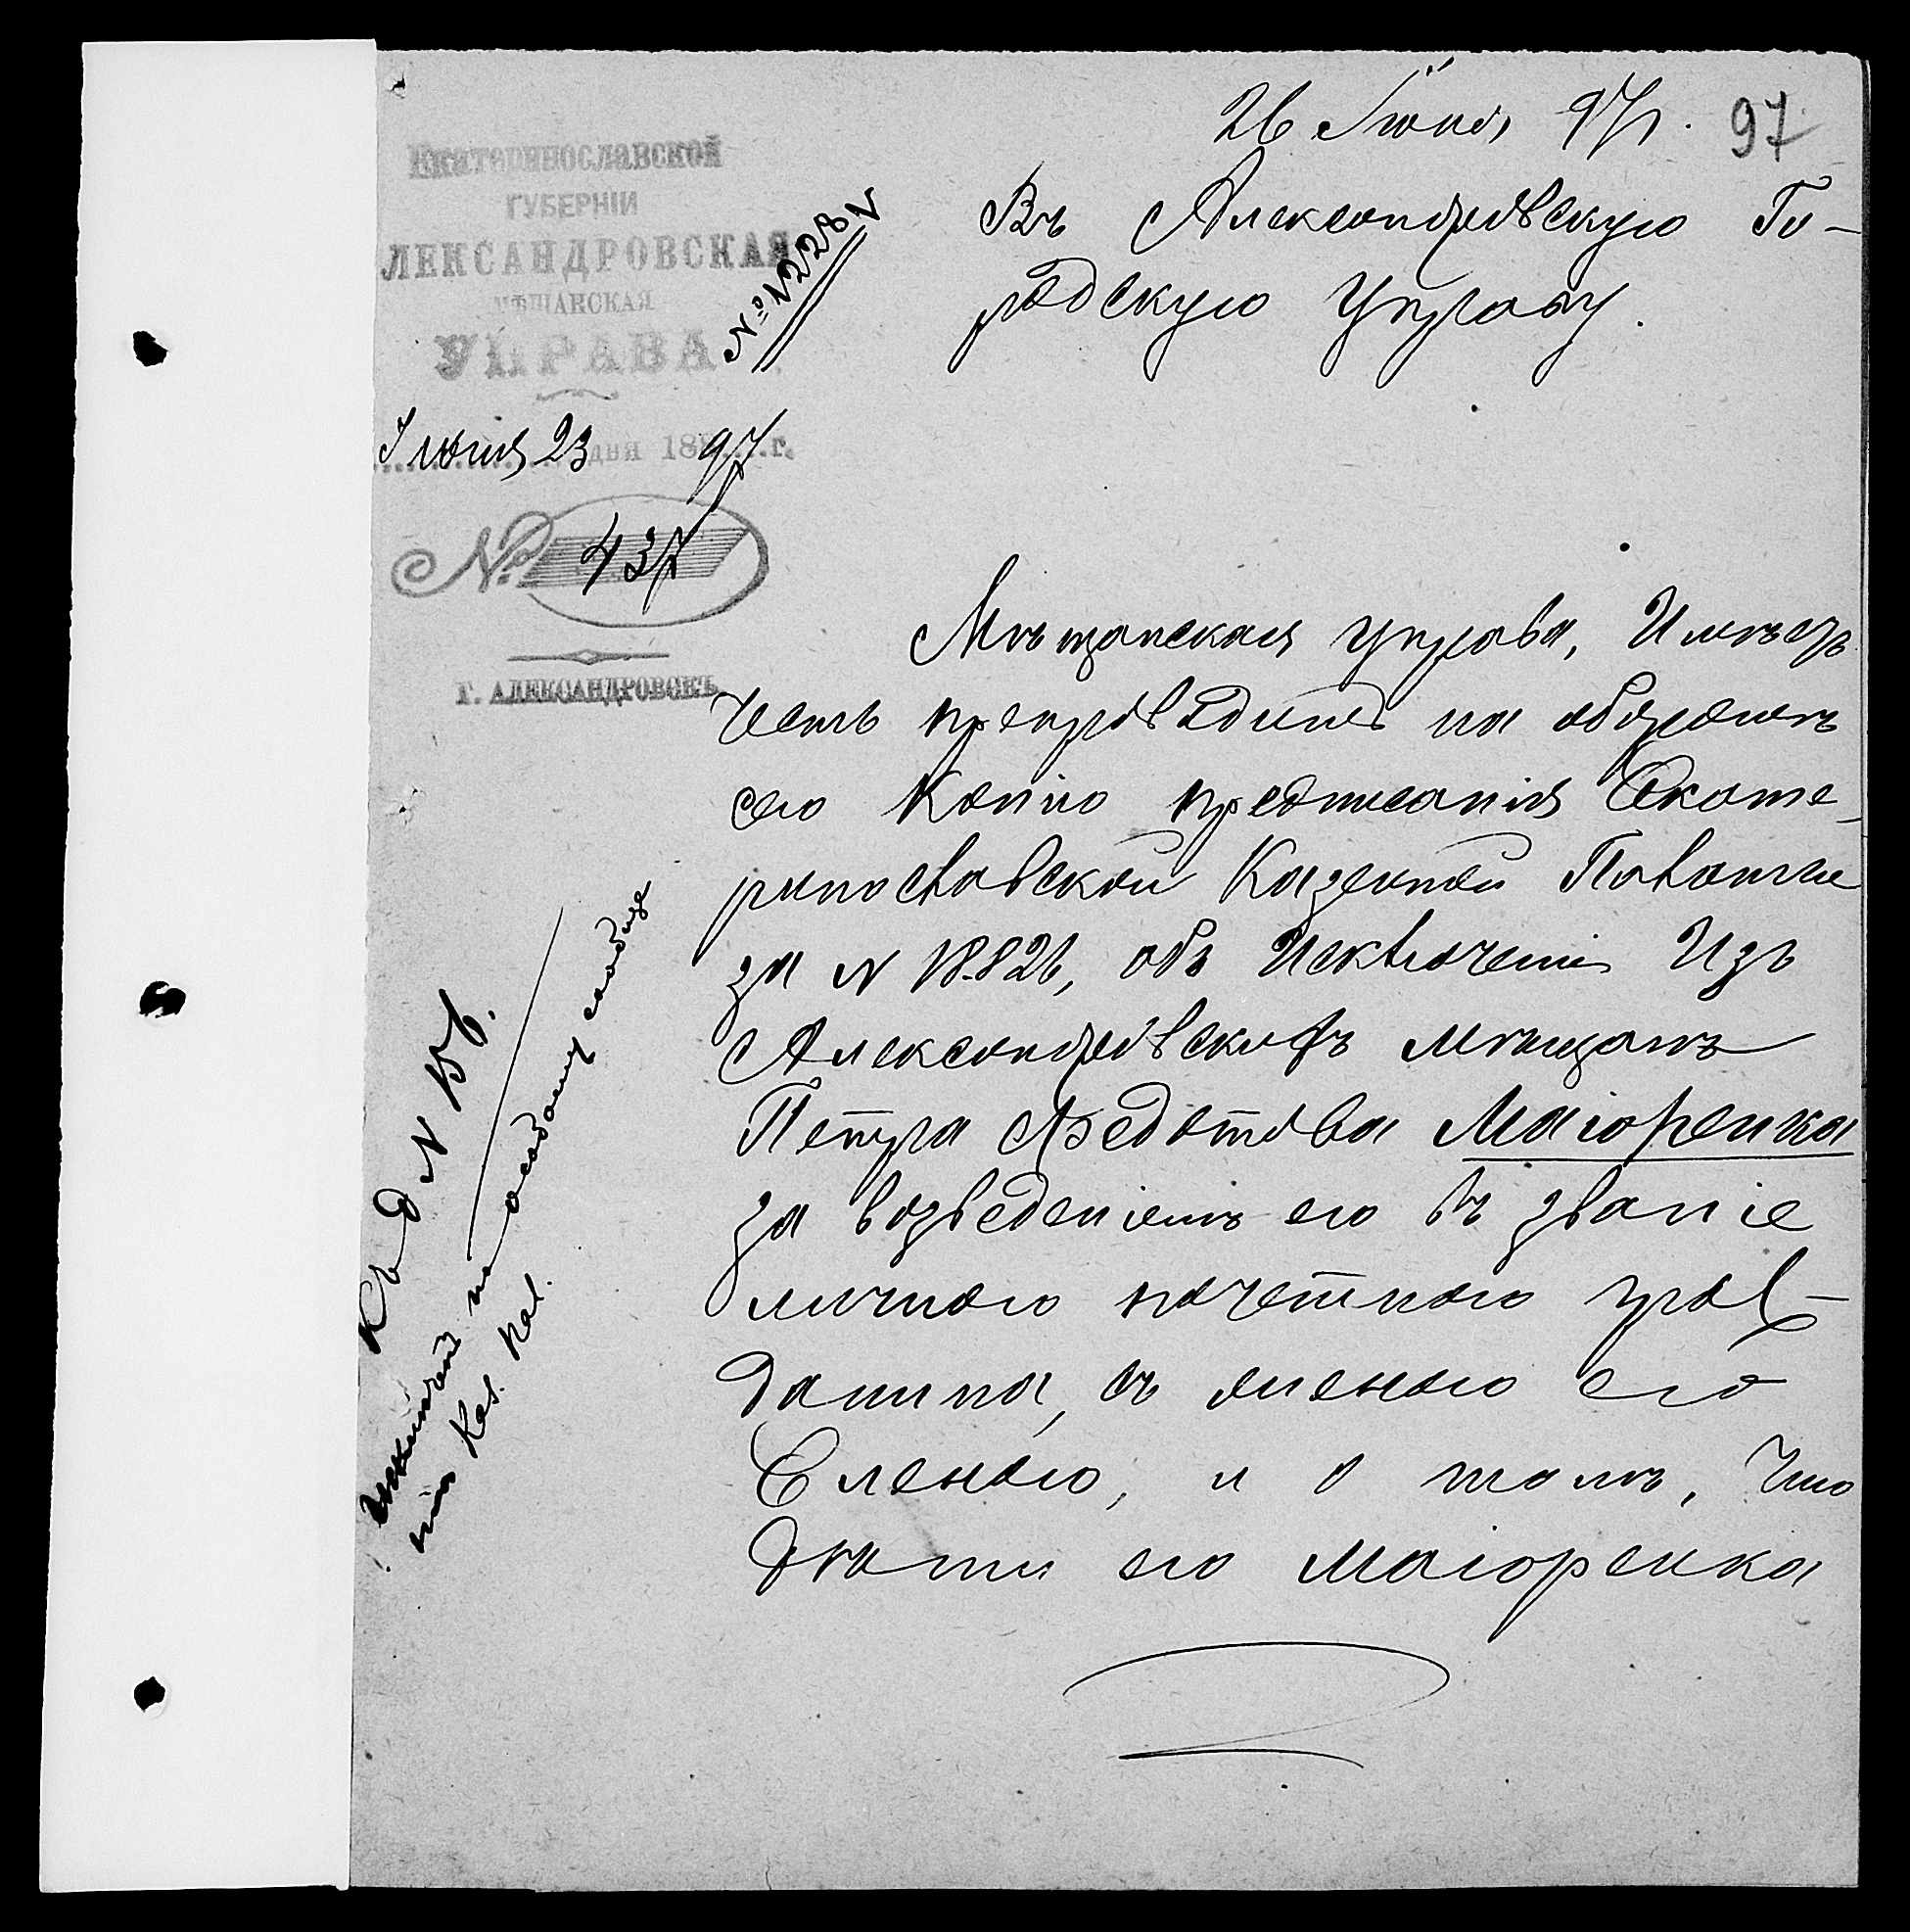 26 Іюня 97 г. 97
Екатеринославской
ГУБЕРНІИ
ЛЕКСАНДРОВСКАЯ
МѢЩАНСКАЯ
УПРАВА
Іюня 23 дня 1897 г.
№ 437
Г. АЛЕКСАНДРОВСКЪ
№ 1228
Въ Александровскую Го-
родскую Управу.
Мѣщанская управа, Имѣетъ
честь препроводить на оборотѣ
сего копію предписанія Екате-
ринославской Казенной Палаты
за N 18826, объ Исключеніи Изъ
Александровскихъ мѣщанъ
Петра Федотова Маіоренка
за возведеніемъ его въ званіе
личного почетного граж-
данина, съ женою его
Еленою, и о томъ, что
дѣти его Маіоренка
Къ д N
по особому
Каз. Пал.